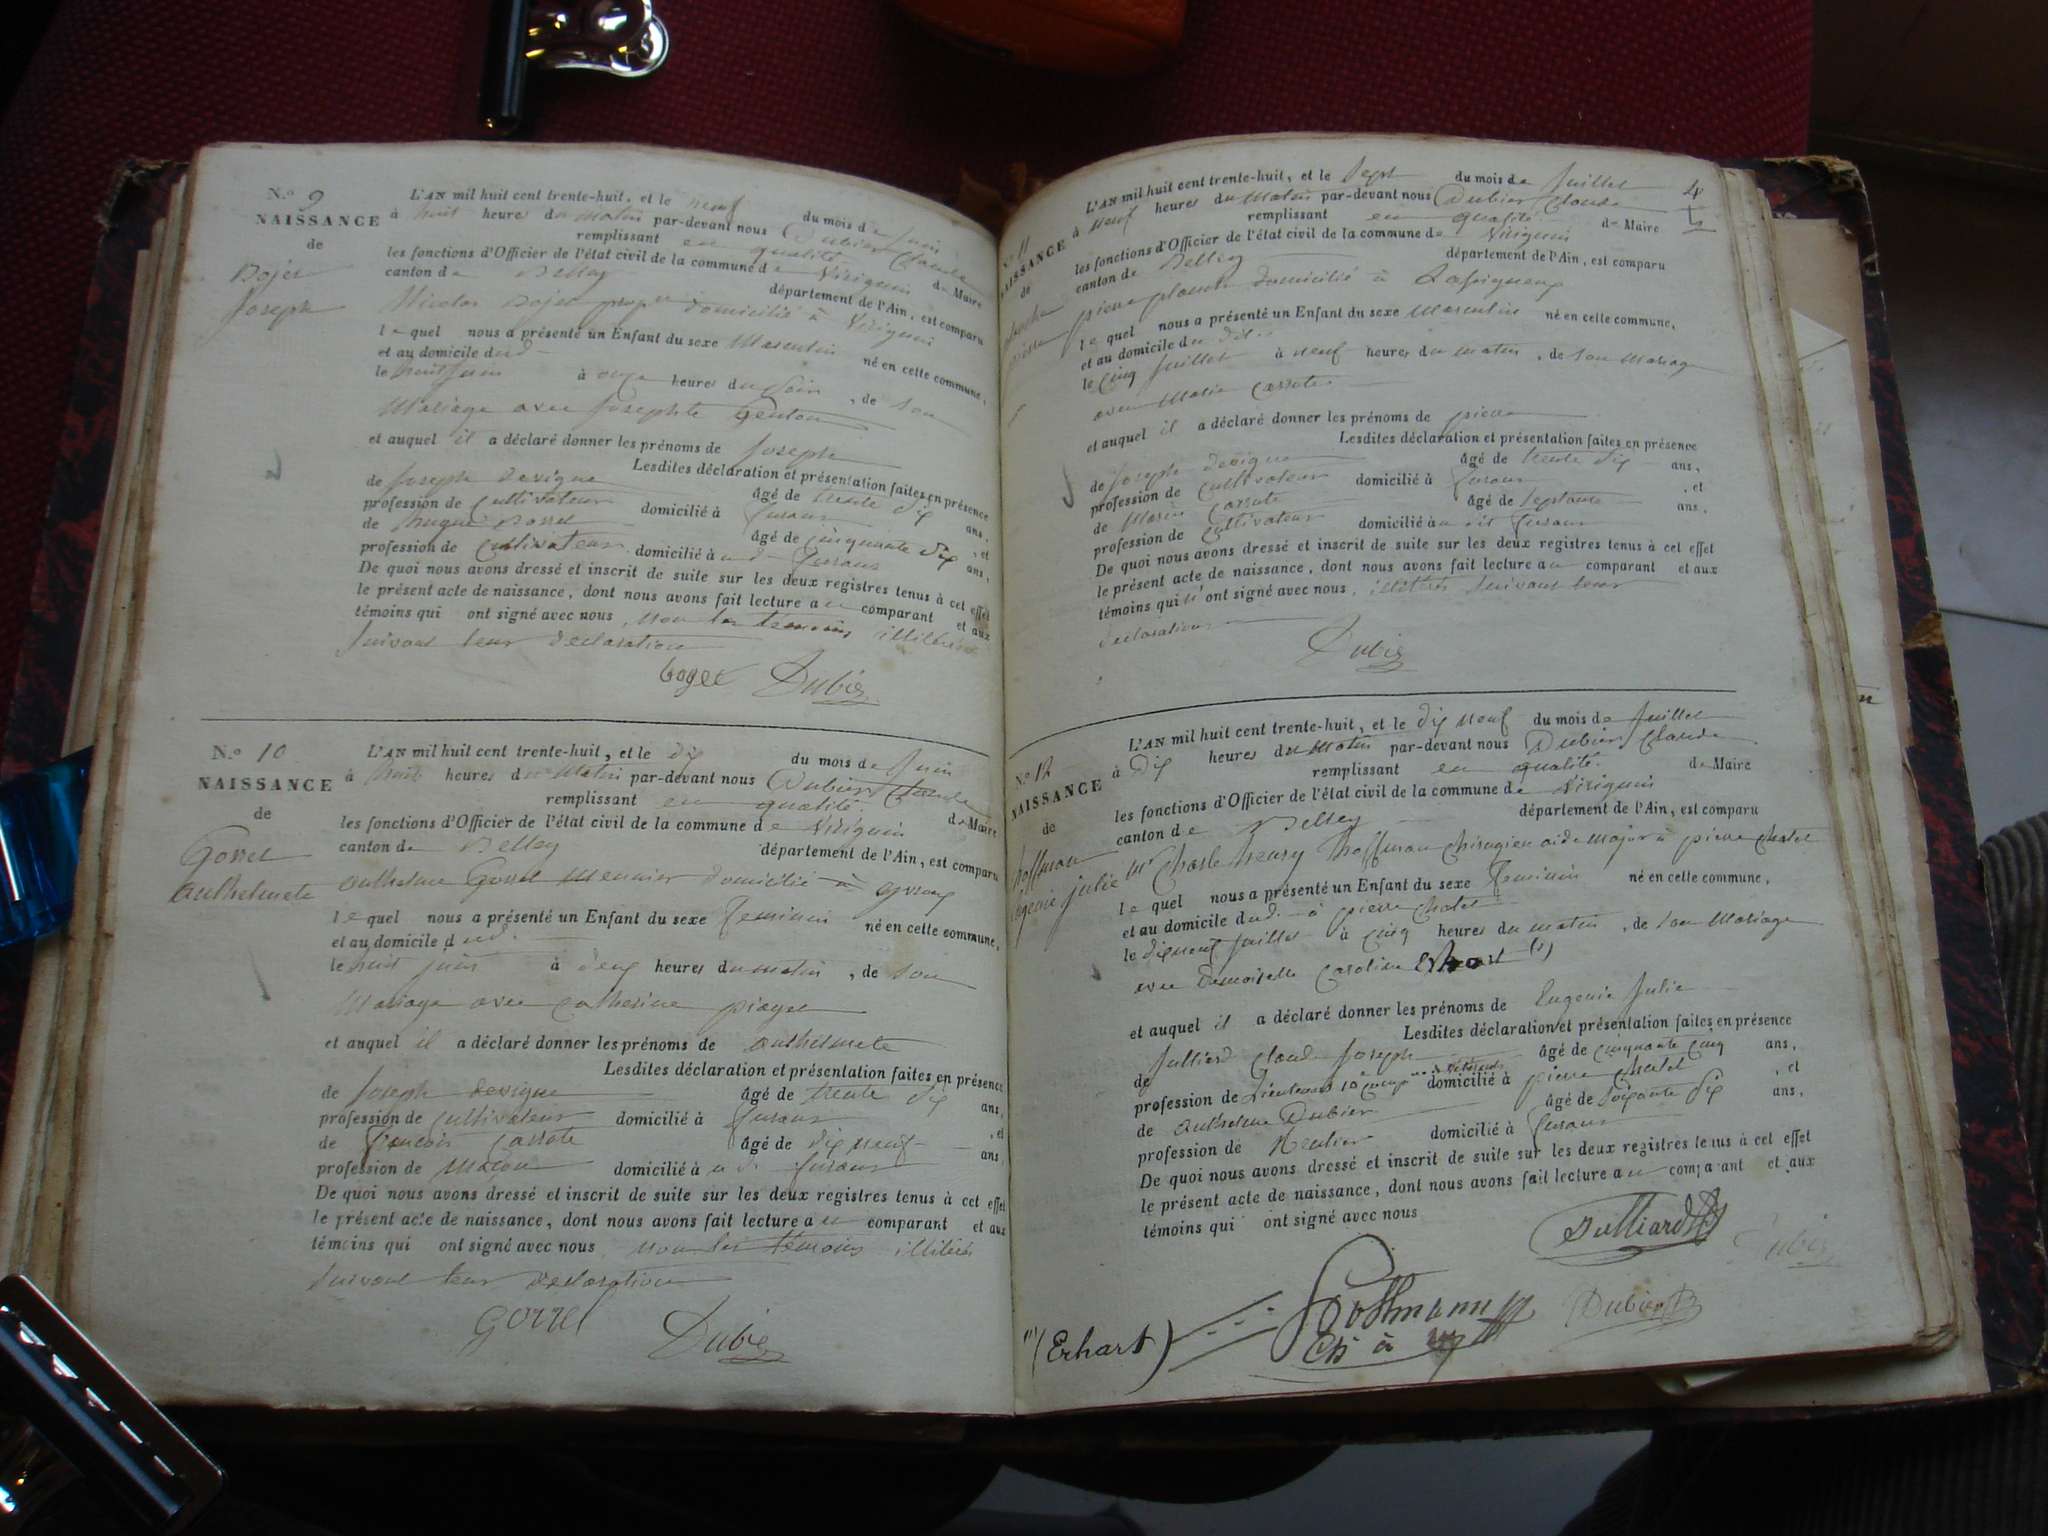 N.o 9
NAISSANCE
de
Bojet
Joseph
L'AN mil huit cent trente-huit, et le neuf du mois de juin
à huit heures du matin par-devant nous Dubier Claude
remplissant en qualité de Maire
les fonctions d'Officier de l'état civil de la commune de Virignin
canton de Belley département de l'Ain, est comparu
Nicolas domicilié à Virignin
le quel nous a présenté un Enfant du sexe Masculin né en cette commune,
et au domicile dud
le huit juin à onze heures du Soir, de son
Mariage avec Josephte
et auquel il a déclaré donner les prénoms de Joseph
Lesdites déclaration et présentation faites en présence
de Joseph Devigne âgé de trente dix ans,
profession de Cultivateur domicilié à fusaus , et
de hugue Borret âgé de cinquante dix ans,
profession de Cultivateur domicilié à ud fusaus
De quoi nous avons dressé et inscrit de suite sur les deux registres tenus à cet effet
le présent acte de naissance, dont nous avons fait lecture au comparant et aux
témoins qui ont signé avec nous, non les témoins illitérés
suivant leur declaration
Dubier
N.o 10
NAISSANCE
de
Gorret
anthelmete
L'AN mil huit cent trente-huit, et le dix du mois de juin
à huit heures du Matin par-devant nous Dubier Claude
remplissant en qualité de Maire
les fonctions d'Officier de l'état civil de la commune de Virignin
canton de Belley département de l'Ain, est comparu
anthelme Gorret Meunier domicilié à
le quel nous a présenté un Enfant du sexe feminin né en cette commune,
et au domicile dud.
le huit juin à deux heures du matin, de son
Mariage avec catherine piaget
et auquel il a déclaré donner les prénoms de anthelmete
Lesdites déclaration et présentation faites en présence
de Joseph devigne âgé de trente dix ans,
profession de Cultivateur domicilié à fusaus , et
de francois Cassote âgé de dix neuf ans,
profession de Maçon domicilié à ud fusaus
De quoi nous avons dressé et inscrit de suite sur les deux registres tenus à cet effet
le présent acte de naissance, dont nous avons fait lecture au comparant et aux
témoins qui ont signé avec nous non les témoins illitérés
suivant leur declaration
gorrel Dubier
4
11
NAISSANCE
de
L'AN mil huit cent trente-huit, et le Sept du mois de Juillet
à neuf heures du Matin par-devant nous Dubier Claude
remplissant en qualité de Maire
les fonctions d'Officier de l'état civil de la commune de Virignin
canton de Belley département de l'Ain, est comparu
pierre domicilié à
le quel nous a présenté un Enfant du sexe Masculin né en cette commune,
et au domicile du dit
le cinq Juillet à neuf heures du matin, de son Mariage
avec Marie Cassote
et auquel il a déclaré donner les prénoms de pierre
Lesdites déclaration et présentation faites en présence
de Joseph Devigne âgé de trente dix ans,
profession de Cultivateur domicilié à fusaus , et
de Marin Cassote âgé de septante ans,
profession de Cultivateur domicilié à u dit fusaus
De quoi nous avons dressé et inscrit de suite sur les deux registres tenus à cet effet
le présent acte de naissance, dont nous avons fait lecture au comparant et aux
témoins qui n'ont signé avec nous, illitérés suivant leur
declaration
Dubier
N.o 12
NAISSANCE
de
hoffman
Eugénie julie
L'AN mil huit cent trente-huit, et le dix neuf du mois de Juillet
à Dix heures du Matin par-devant nous Dubier Claude
remplissant en qualité de Maire
les fonctions d'Officier de l'état civil de la commune de Virignin
canton de Belley département de l'Ain, est comparu
Mr Charle henry hoffman chirugien aide major à pierre chatel
le quel nous a présenté un Enfant du sexe feminin né en cette commune,
et au domicile dud. à pierre chatel
le dix neuf juillet à cinq heures du matin, de son Mariage
avec Demoiselle Caroline Erhart (1)
et auquel il a déclaré donner les prénoms de Eugenie Julie
Lesdites déclaration et présentation faites en présence
de Julliard Claude Joseph âgé de cinquante cinq ans,
profession de Lieutenant 10e comp. vétérans domicilié à pierre chatel , et
de anthelme Dubier âgé de soixante dix ans,
profession de Rentier domicilié à fusaus
De quoi nous avons dressé et inscrit de suite sur les deux registres tenus à cet effet
le présent acte de naissance, dont nous avons fait lecture au comparant et aux
témoins qui ont signé avec nous
Julliard Dubier
"(Erhart) Hoffmann Dubier